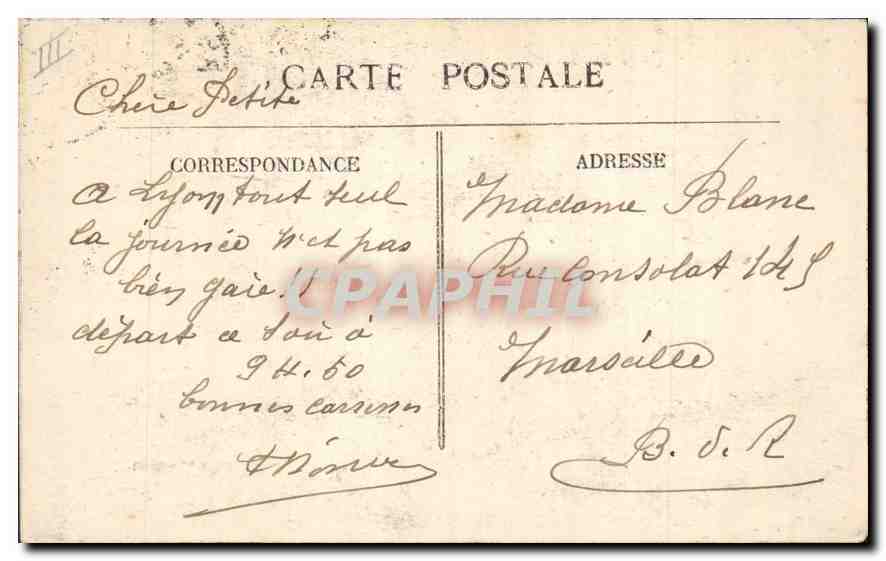 III
CARTE POSTALE
Chère Petite
CORRESPONDANCE
a Lyon tout seul
la journée n'et pas
bien gaie!!
départ ce soir à
9 H. 50
bonnes caresses
ADRESSE
Madame Blanc
Rue Consolat 145
Marseille
B. d. R
CPAPHIL